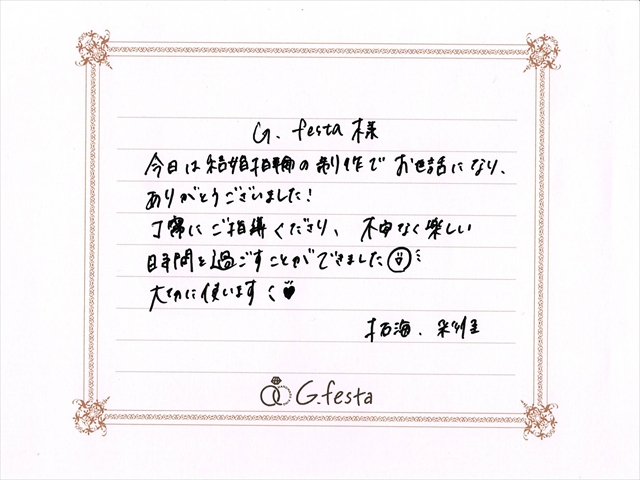 G. festa 様
今日は結婚指輪の制作でお世話になり、
ありがとうございました!
丁寧にご指導くださり、不安なく楽しい
時間を過ごすことができました
大切に使います
拓海.
G.festa